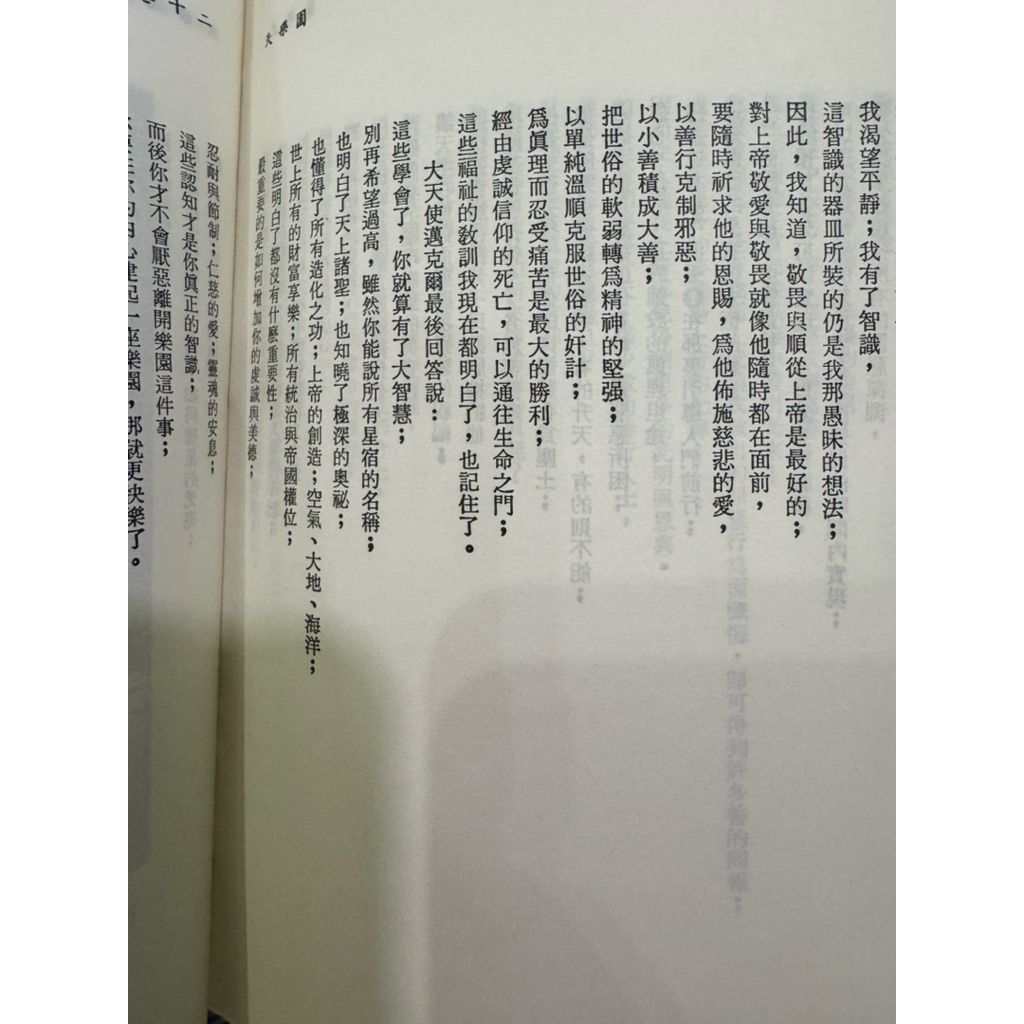 失樂園
我渴望平靜；我有了智識，
這智識的器皿所裝的仍是我那愚昧的想法；
因此，我知道，敬畏與順從上帝是最好的；
對上帝敬愛與敬畏就像他隨時都在面前，
要隨時祈求他的恩賜，爲他佈施慈悲的愛，
以善行克制邪惡；
以小善積成大善；
把世俗的軟弱轉爲精神的堅强；
以單純溫順克服世俗的奸計；
爲眞理而忍受痛苦是最大的勝利；
經由虔誠信仰的死亡，可以通往生命之門；
這些福祉的教訓我現在都明白了，也記住了。
大天使邁克爾最後回答說：
這些學會了，你就算有了大智慧；
別再希望過高，雖然你能說所有星宿的名稱；
也明白了天上諸聖；也知曉了極深的奧祕；
也懂得了所有造化之功；上帝的創造；空氣、大地、海洋；
世上所有的財富享樂；所有統治與帝國權位；
這些明白了都沒有什麼重要性；
最重要的是如何增加你的虔誠與美德；
二十
忍耐與節制；仁慈的愛；靈魂的安息；
這些認知才是你眞正的智識；
而後你才不會厭惡離開樂園這件事；
你的內心建起一座樂園，那就更快樂了。